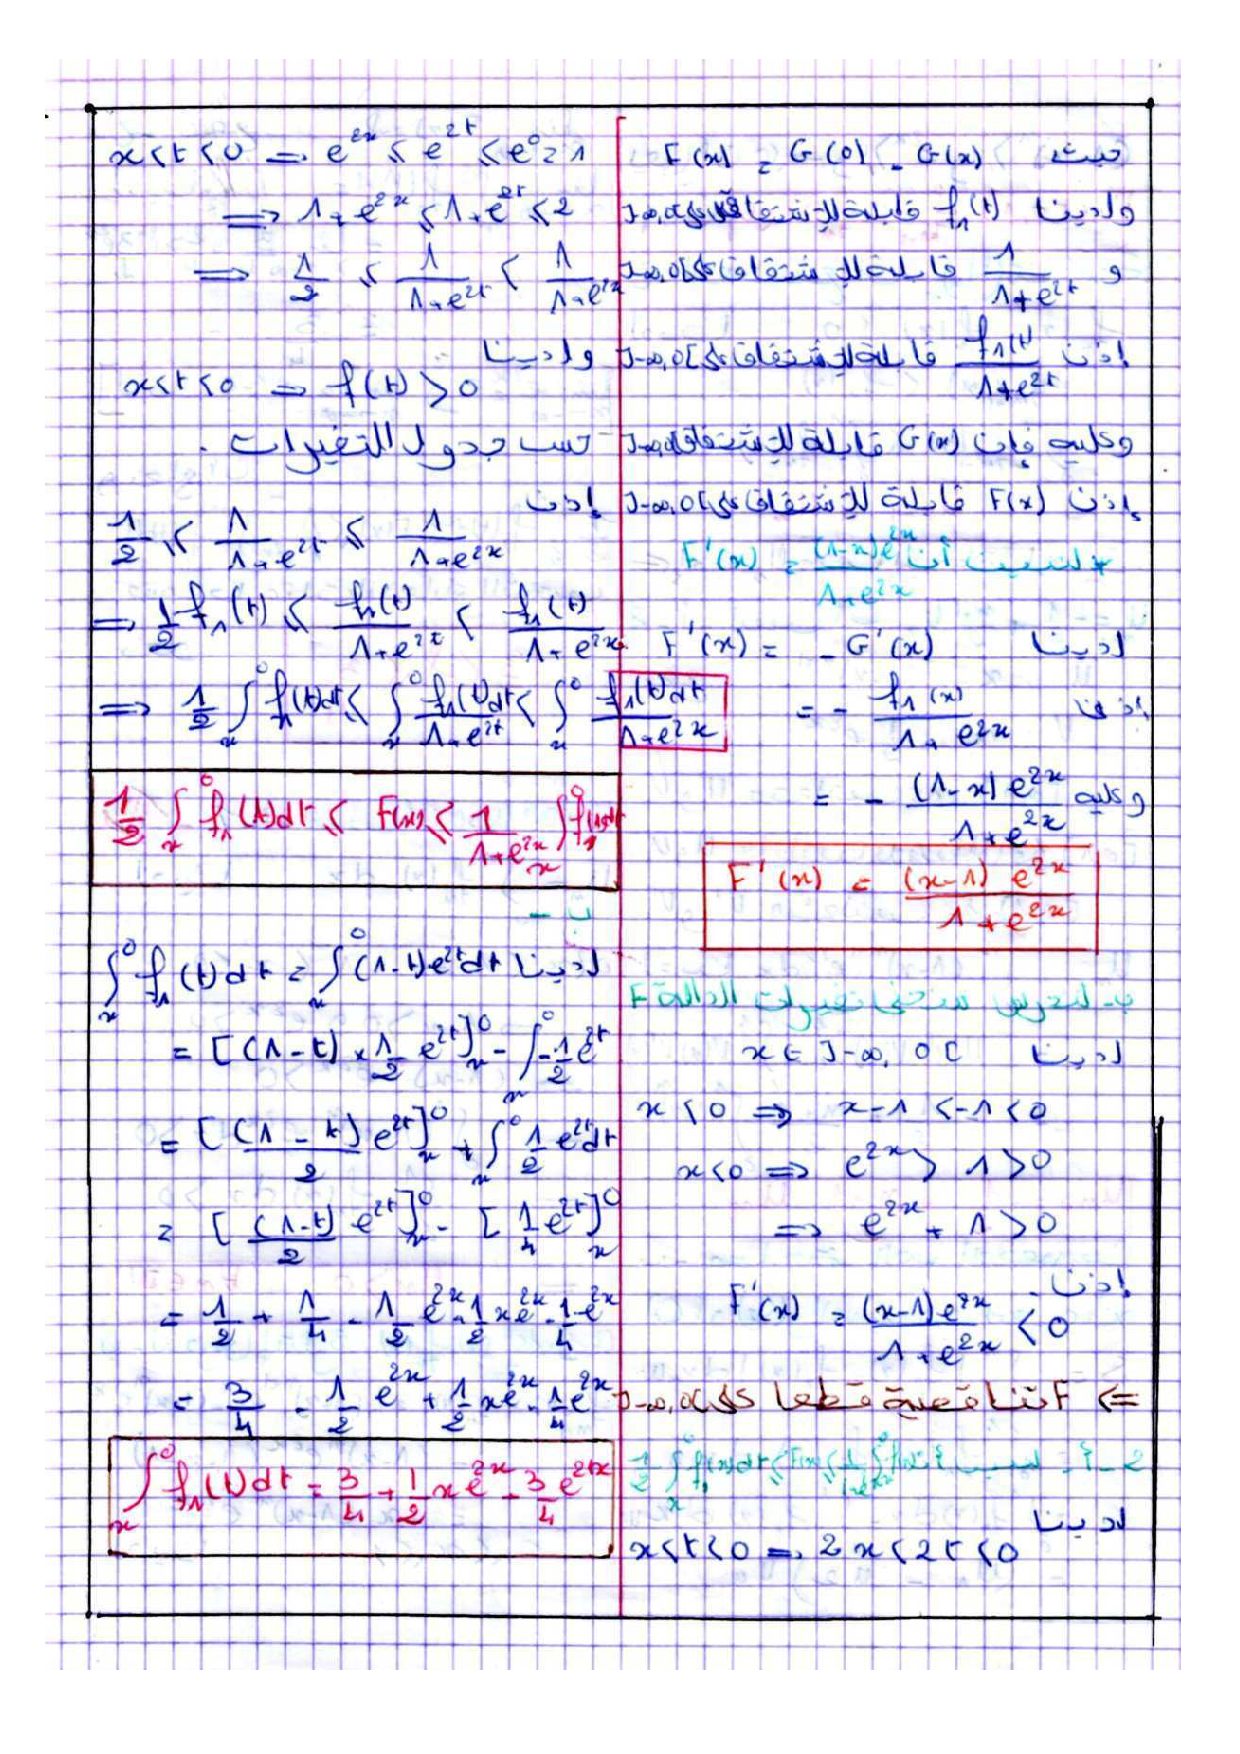 حيث F(x) = G(0) - G(x)
ولدينا f₁(t) قابلة للإشتقاق على ]-∞,0[
و 1/(1+e^{2t}) قابلة للإشتقاق على ]-∞,0[
إذن f₁(t)/(1+e^{2t}) قابلة للإشتقاق على ]-∞,0[
وعليه فإن G(x) قابلة للإشتقاق ]-∞,0[
إذن F(x) قابلة للإشتقاق على ]-∞,0[
* لنبين أن F'(x) = (1-x)e^{2x}/(1+e^{2x})
لدينا F'(x) = -G'(x)
إذن = - f₁(x)/(1+e^{2x})
وعليه = - (1-x)e^{2x}/(1+e^{2x})
F'(x) = (x-1) e^{2x}/(1+e^{2x})
ب- لندرس منحى تغيرات الدالة F
لدينا x ∈ ]-∞, 0[
x < 0 ⟹ x-1 < -1 < 0
x < 0 ⟹ e^{2x} > 1 > 0
⟹ e^{2x} + 1 > 0
إذن
F'(x) = (x-1)e^{2x}/(1+e^{2x}) < 0
=> F تناقصية قطعا على ]-∞,0[
2-أ- لنبين أن
لدينا
x<t<0 ⟹ 2x<2t<0
x<t<0 ⟹ e^{2x} ≤ e^{2t} ≤ e^0 = 1
⟹ 1+e^{2x} ≤ 1+e^{2t} ≤ 2
⟹ 1/2 ≤ 1/(1+e^{2t}) < 1/(1+e^{2x})
ولدينا
x<t<0 ⟹ f(t) > 0
حسب جدول التغيرات .
إذن
1/2 ≤ 1/(1+e^{2t}) ≤ 1/(1+e^{2x})
⟹ 1/2 f₁(t) ≤ f₁(t)/(1+e^{2t}) < f₁(t)/(1+e^{2x})
⟹ 1/2 ∫_x^0 f₁(t)dt ≤ ∫_x^0 f₁(t)dt/(1+e^{2t}) < ∫_x^0 f₁(t)dt/(1+e^{2x})
1/2 ∫_x^0 f₁(t)dt ≤ F(x) ≤ 1/(1+e^{2x}) ∫_x^0 f₁(t)dt
ب -
لدينا ∫_x^0 f₁(t)dt = ∫_x^0 (1-t)e^{2t}dt
= [(1-t) × 1/2 e^{2t}]_x^0 - ∫_x^0 -1/2 e^{2t}
= [(1-t)/2 e^{2t}]_x^0 + ∫_x^0 1/2 e^{2t}dt
= [(1-t)/2 e^{2t}]_x^0 - [1/4 e^{2t}]_x^0
= 1/2 + 1/4 - 1/2 e^{2x} - 1/2 xe^{2x} - 1/4 e^{2x}
= 3/4 - 1/2 e^{2x} + 1/2 xe^{2x} - 1/4 e^{2x}
∫_x^0 f₁(t)dt = 3/4 + 1/2 xe^{2x} - 3/4 e^{2x}